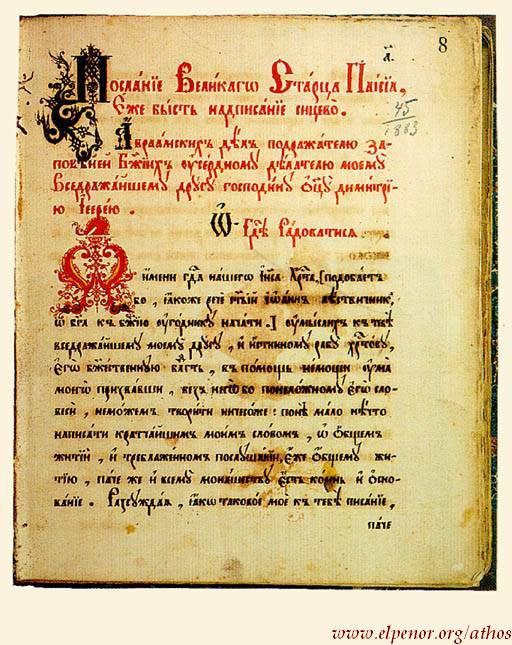 8
а҃
Посланїе Великагѡ Старца Паисїа,
Еже бысть надписанїе сицево̀.
45
1883
Авраамскихъ дѣлъ подражателю за-
повѣдей Бж҃їихъ оутвердному дѣлателю моему
Вседражайшему другу господину ѻц҃у димитрї-
ю їерею.
Ѡ Гдⷭ҇ѣ Радоватися
имени гдⷭ҇а нашегѡ їи҃са хрⷭ҇та, [подобаетъ
бо, ꙗкоже рече ст҃ый їѡаннъ лѣствичникъ,
ѿ бг҃а къ бж҃їю оугоднику начати.] оумыслихъ къ тебѣ
вседражайшему моему другу, и истинному рабу хрⷭ҇тову,
егѡ бжⷭ҇твенную власть, въ помощь немощи оума
моегѡ призвавши, безъ негѡ бо по неложному егѡ сло-
веси, неможемъ творити ничесоже: понѣ мало нѣчто
написати кратчайшимъ моимъ словомъ, ѡ ѻбщемъ
житїи, и треблаженномъ послушанїи, еже ѻбщему жи-
тїю, паче же и всему монашеству есть корень и ѻсно-
ванїе. Разсуждаѧ, ꙗкѡ таковое мое къ тебѣ писанїе,
паче
www.elpenor.org/athos